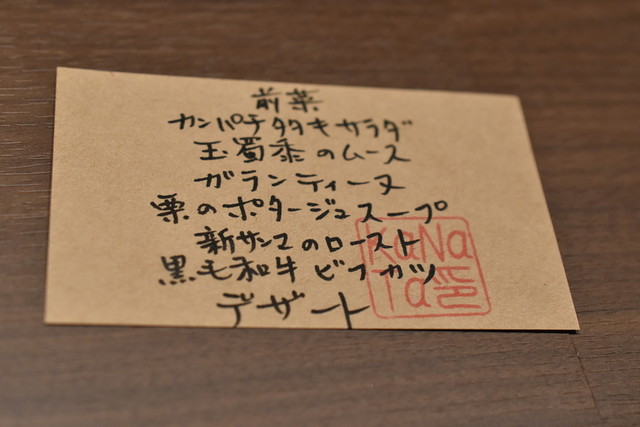 前菜
カンパチタタキサラダ
玉蜀黍のムース
ガランティーヌ
栗のポタージュスープ
新サンマのロースト
黒毛和牛ビフカツ
デザート
KaNa
Ta